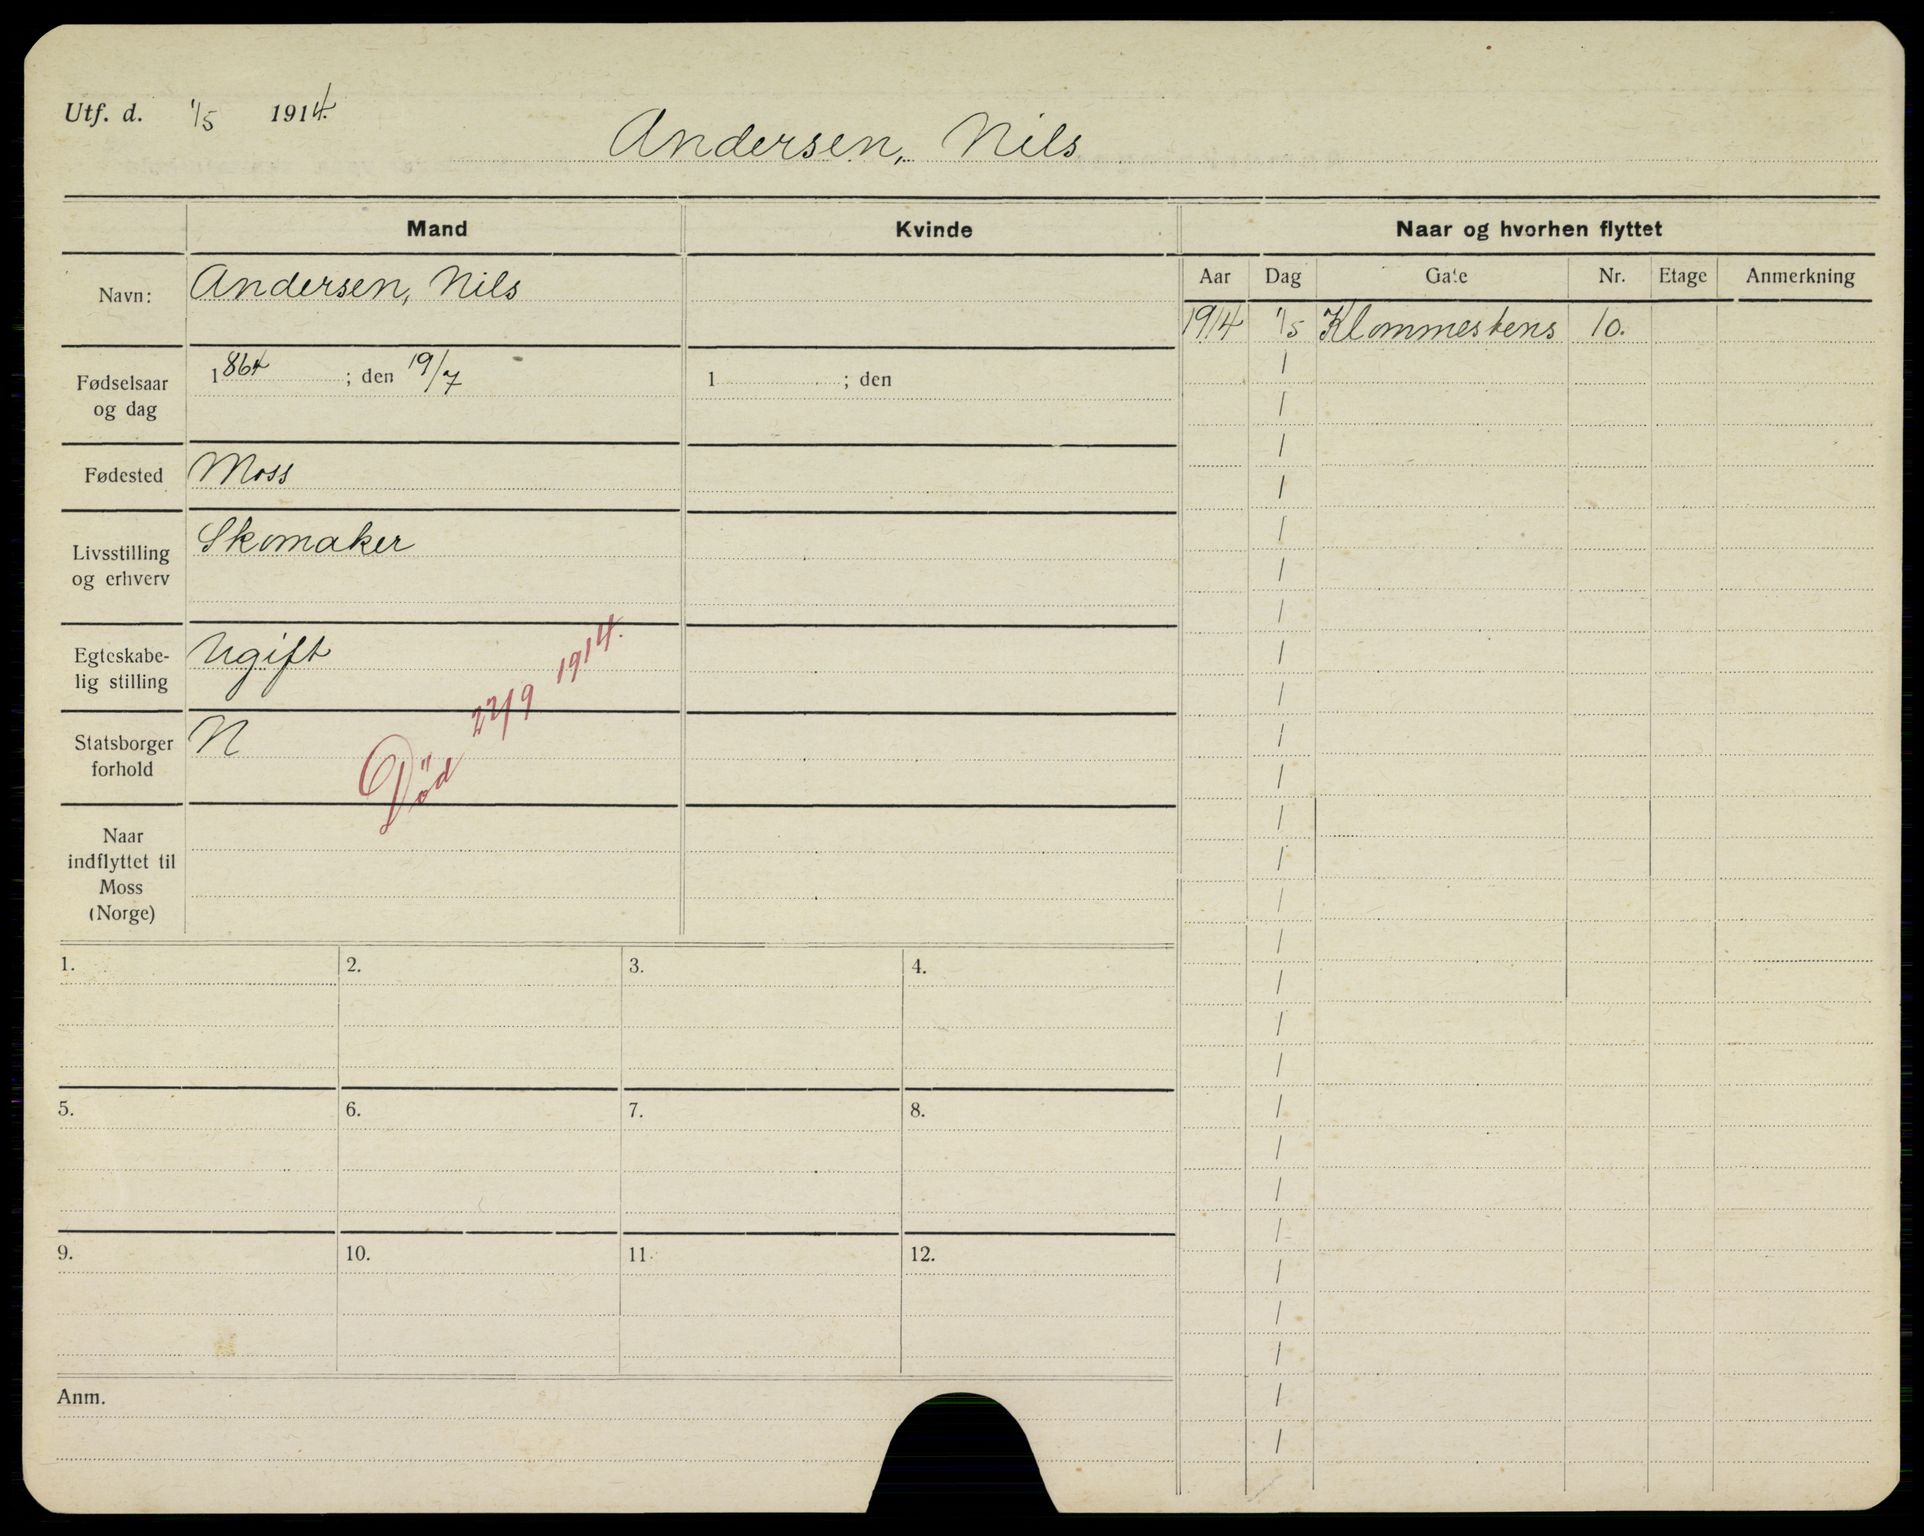 Utf. d. 1/5 1914.
Andersen, Nils
Mand
Kvinde
Naar og hvorhen flyttet
Aar Dag Gate Nr. Etage Anmerkning
Navn: Andersen, Nils
1914 1/5 Klommestens 10.
Fødselsaar og dag
1864 ; den 19/7
1 ; den
Fødested Moss
Livsstilling og erhverv
Skomaker
Egteskabe-
lig stilling
Ugift
Statsborger
forhold
N
Død 22/9 1914.
Naar
indflyttet til
Moss
(Norge)
1. 2. 3. 4.
5. 6. 7. 8.
9. 10. 11. 12.
Anm.